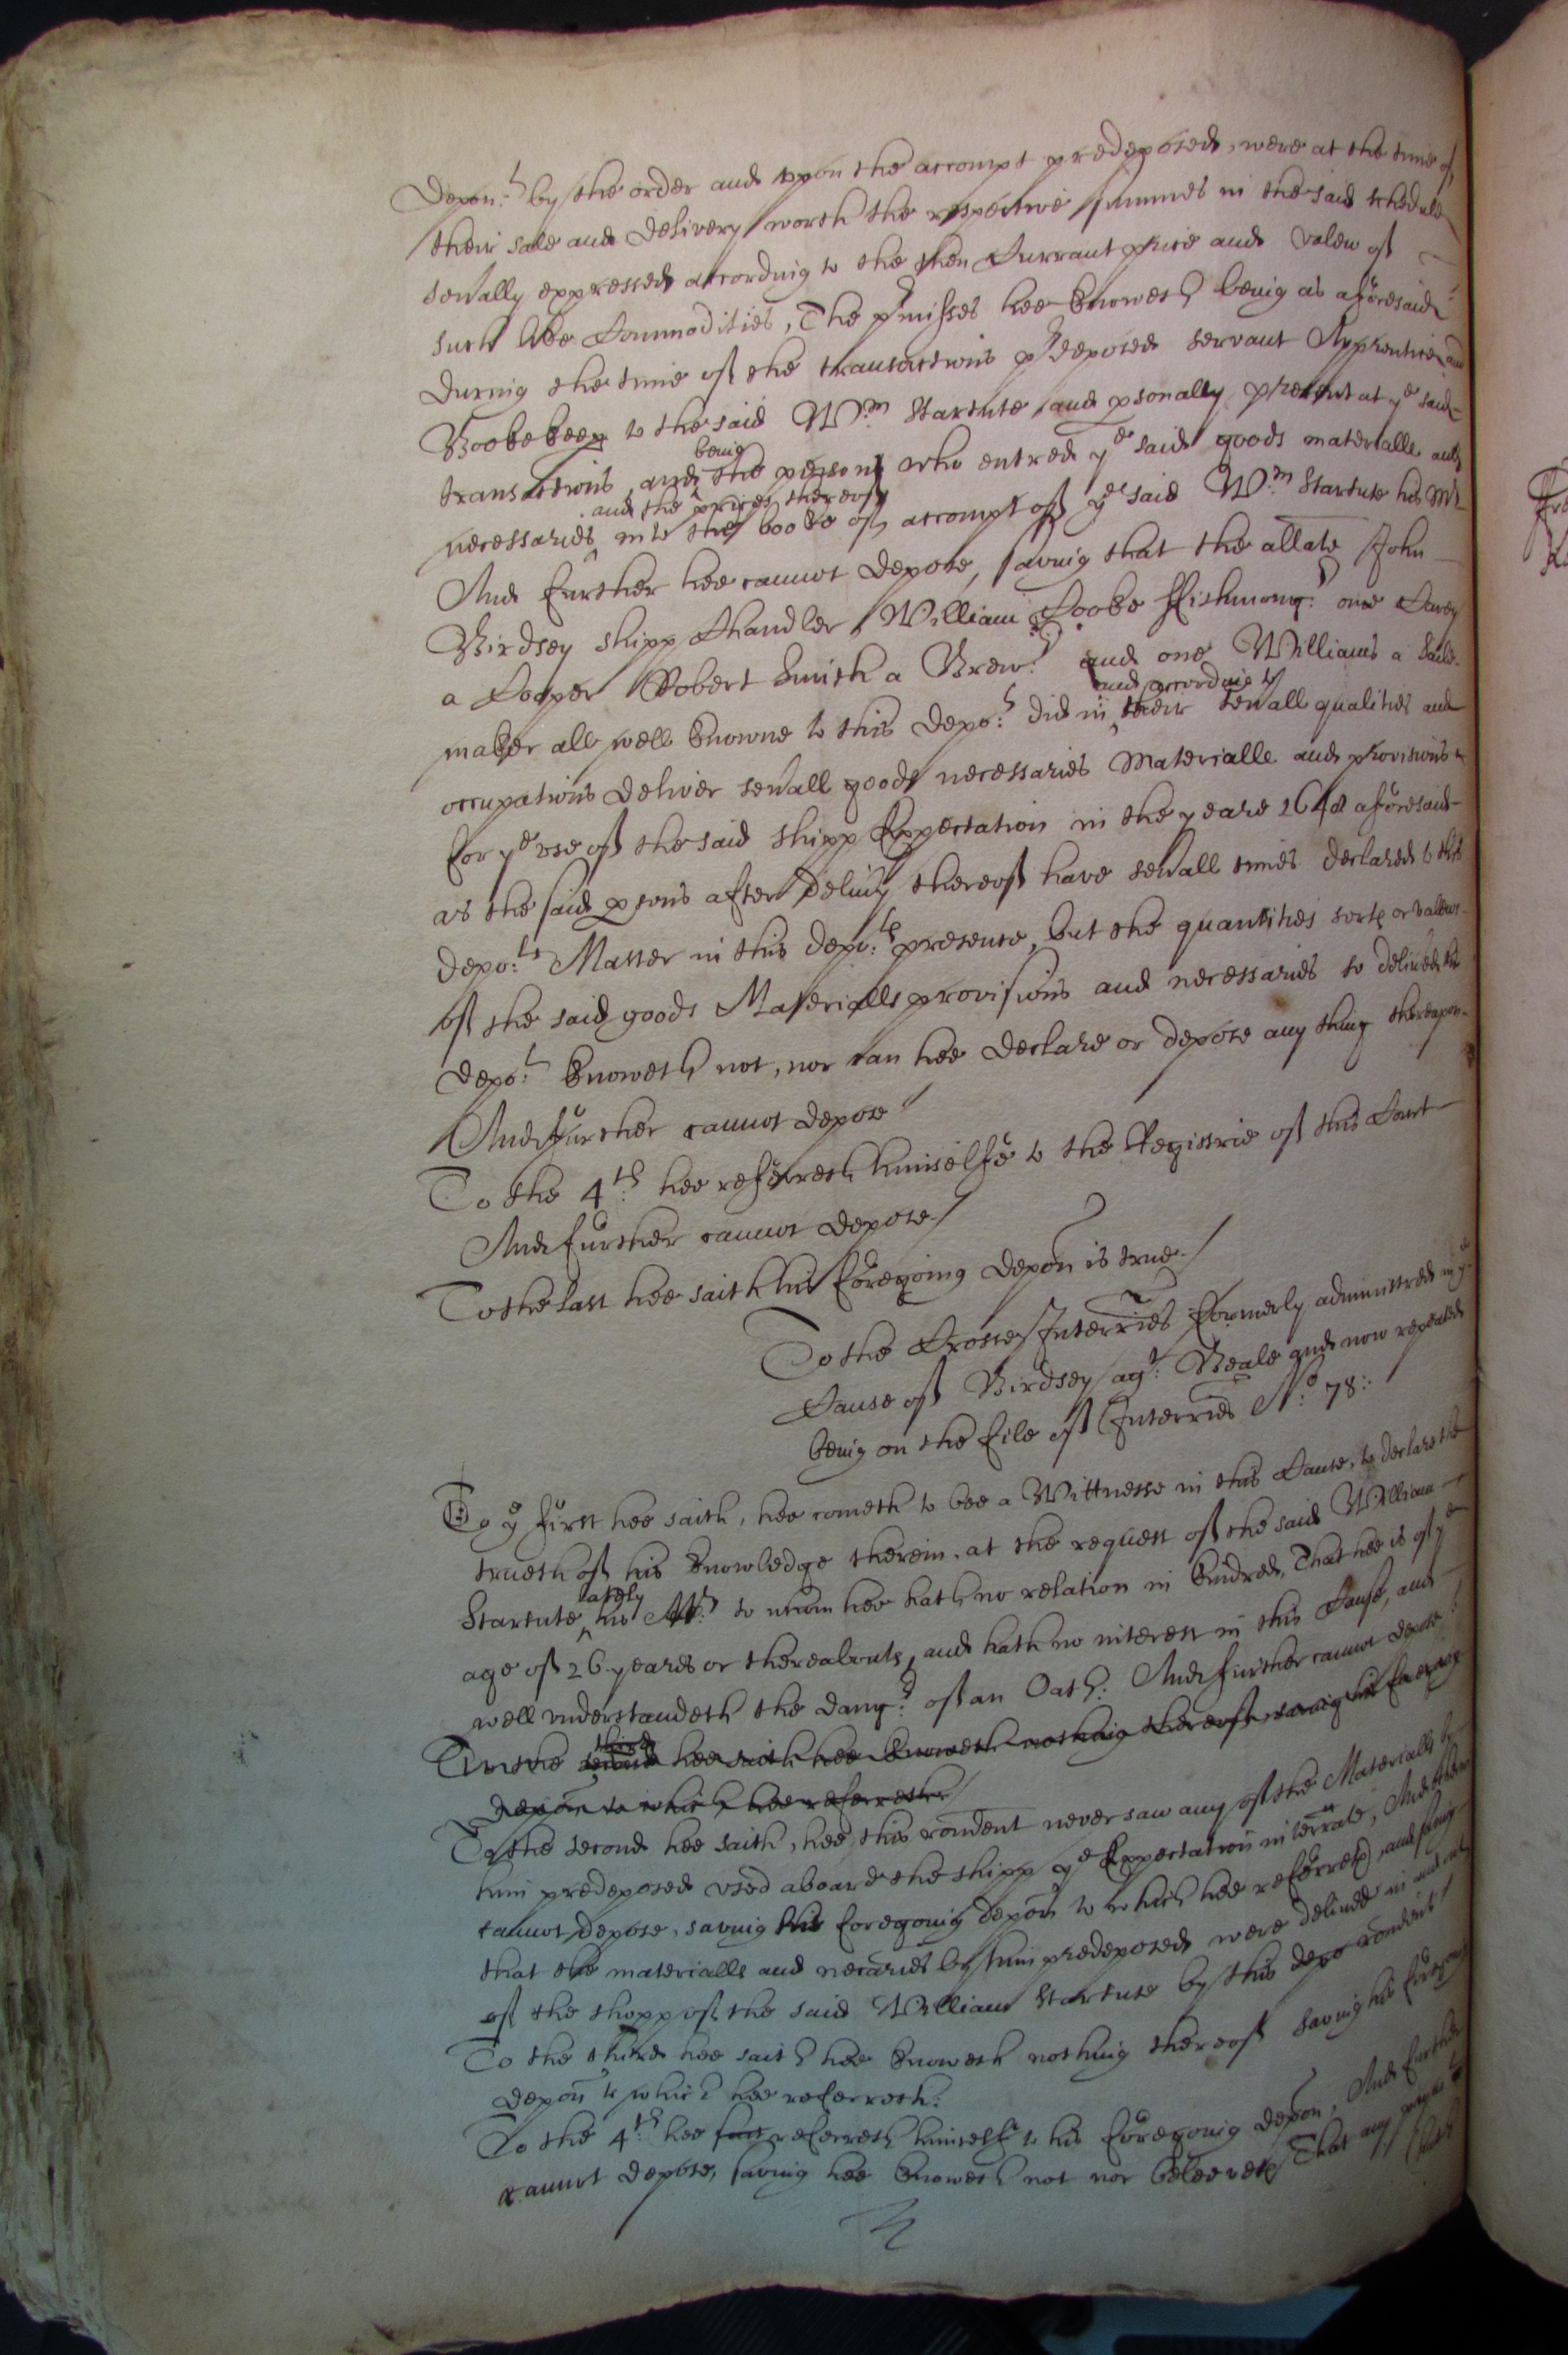 Depon:t by the order and upon the accompt predeposed, were at the time of
their sale and delivery worth the respective summes in the said schedule
sevally expressed according to the then Currant price and valew of
such like Commodities, The pmisses hee knoweth being as aforesaid
during the time of the transactions pdeposed servant Apprentice and
Bookekeep to the said Wm Startute and psonally present at ye said
transactions, and being the person who entred ye said goods materialls and
necessaries and the prices thereof into the booke of accompt of ye said Wm Startute his Mr
And further hee cannot depose, saving that the allate John
Birdsey shipp Chandler, William Cooke ffishmong:r one Carey
a Cooper Robert Smith a Brew:r and one Williams a Saile
maker all well knowne to this depo:t did in and according to their sevall qualities and
occupations deliver sevall goods necessaries Materialls and provisions
for ye use of the said shipp Expectation in the yeare 1648 aforesaid
as the said psons after delivy thereof have sevall times declared to this
depo:ts Master in this depo:ts presence, but the quantities sorts or valews
of the said goods Materialls provisions and necessaries so delived this
depo:t knoweth not, nor can hee declare or depose any thing thereupon
And further cannot depose
To the 4th: hee referreth himselfe to the Registrie of this Court
And further cannot depose./
To the last hee saith his foregoing depon is true./
To the Crosse Interries formerly administred in ye
Cause of Birdsey agt: Beale and now repeated
being on the file of Interries No: 78:
To ye first hee saith, hee cometh to bee a Wittnesse in this Cause, to declare the
trueth of his knowledge therein, at the request of the said William
Startute, lately his Mr: to whom hee hath no relation in kindred, That hee is of ye
age of 26 yeares or thereabouts, and hath no interest in this Cause, and
well understandeth the dang:r of an Oath: And further cannot depose
To the second third hee saith hee knoweth nothing thereof, saving his foregoing
depon to which hee referreth
To the second hee saith, hee this rondent never saw any of the Materialls by
him predeposed used aboard the shipp ye Expectation interrate, And further
cannot depose, saving his foregoing depon to which hee referreth, and saving
that the materialls and necaries by him predeposed were delived in and out
of the shopp of the said William Startute by this depo rondent
To the third hee saith hee knoweth nothing thereof saving his foregoing
depon to which hee referreth:
To the 4th: hee saith referreth himself to his foregoing depon, And further
cannot depose, saving hee knoweth not nor beleeveth That any